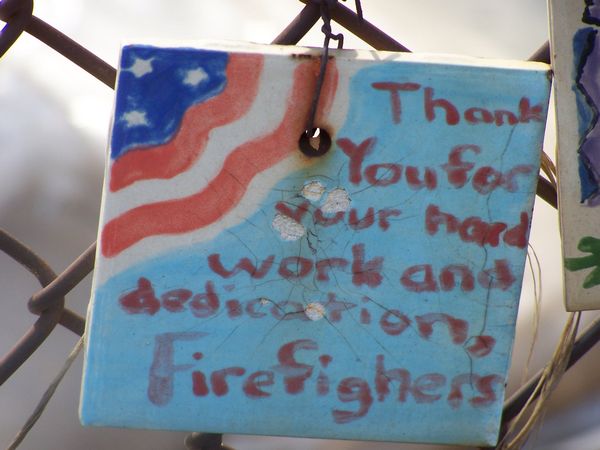 Thank
You for
your hard
work and
dedication,
Firefighers